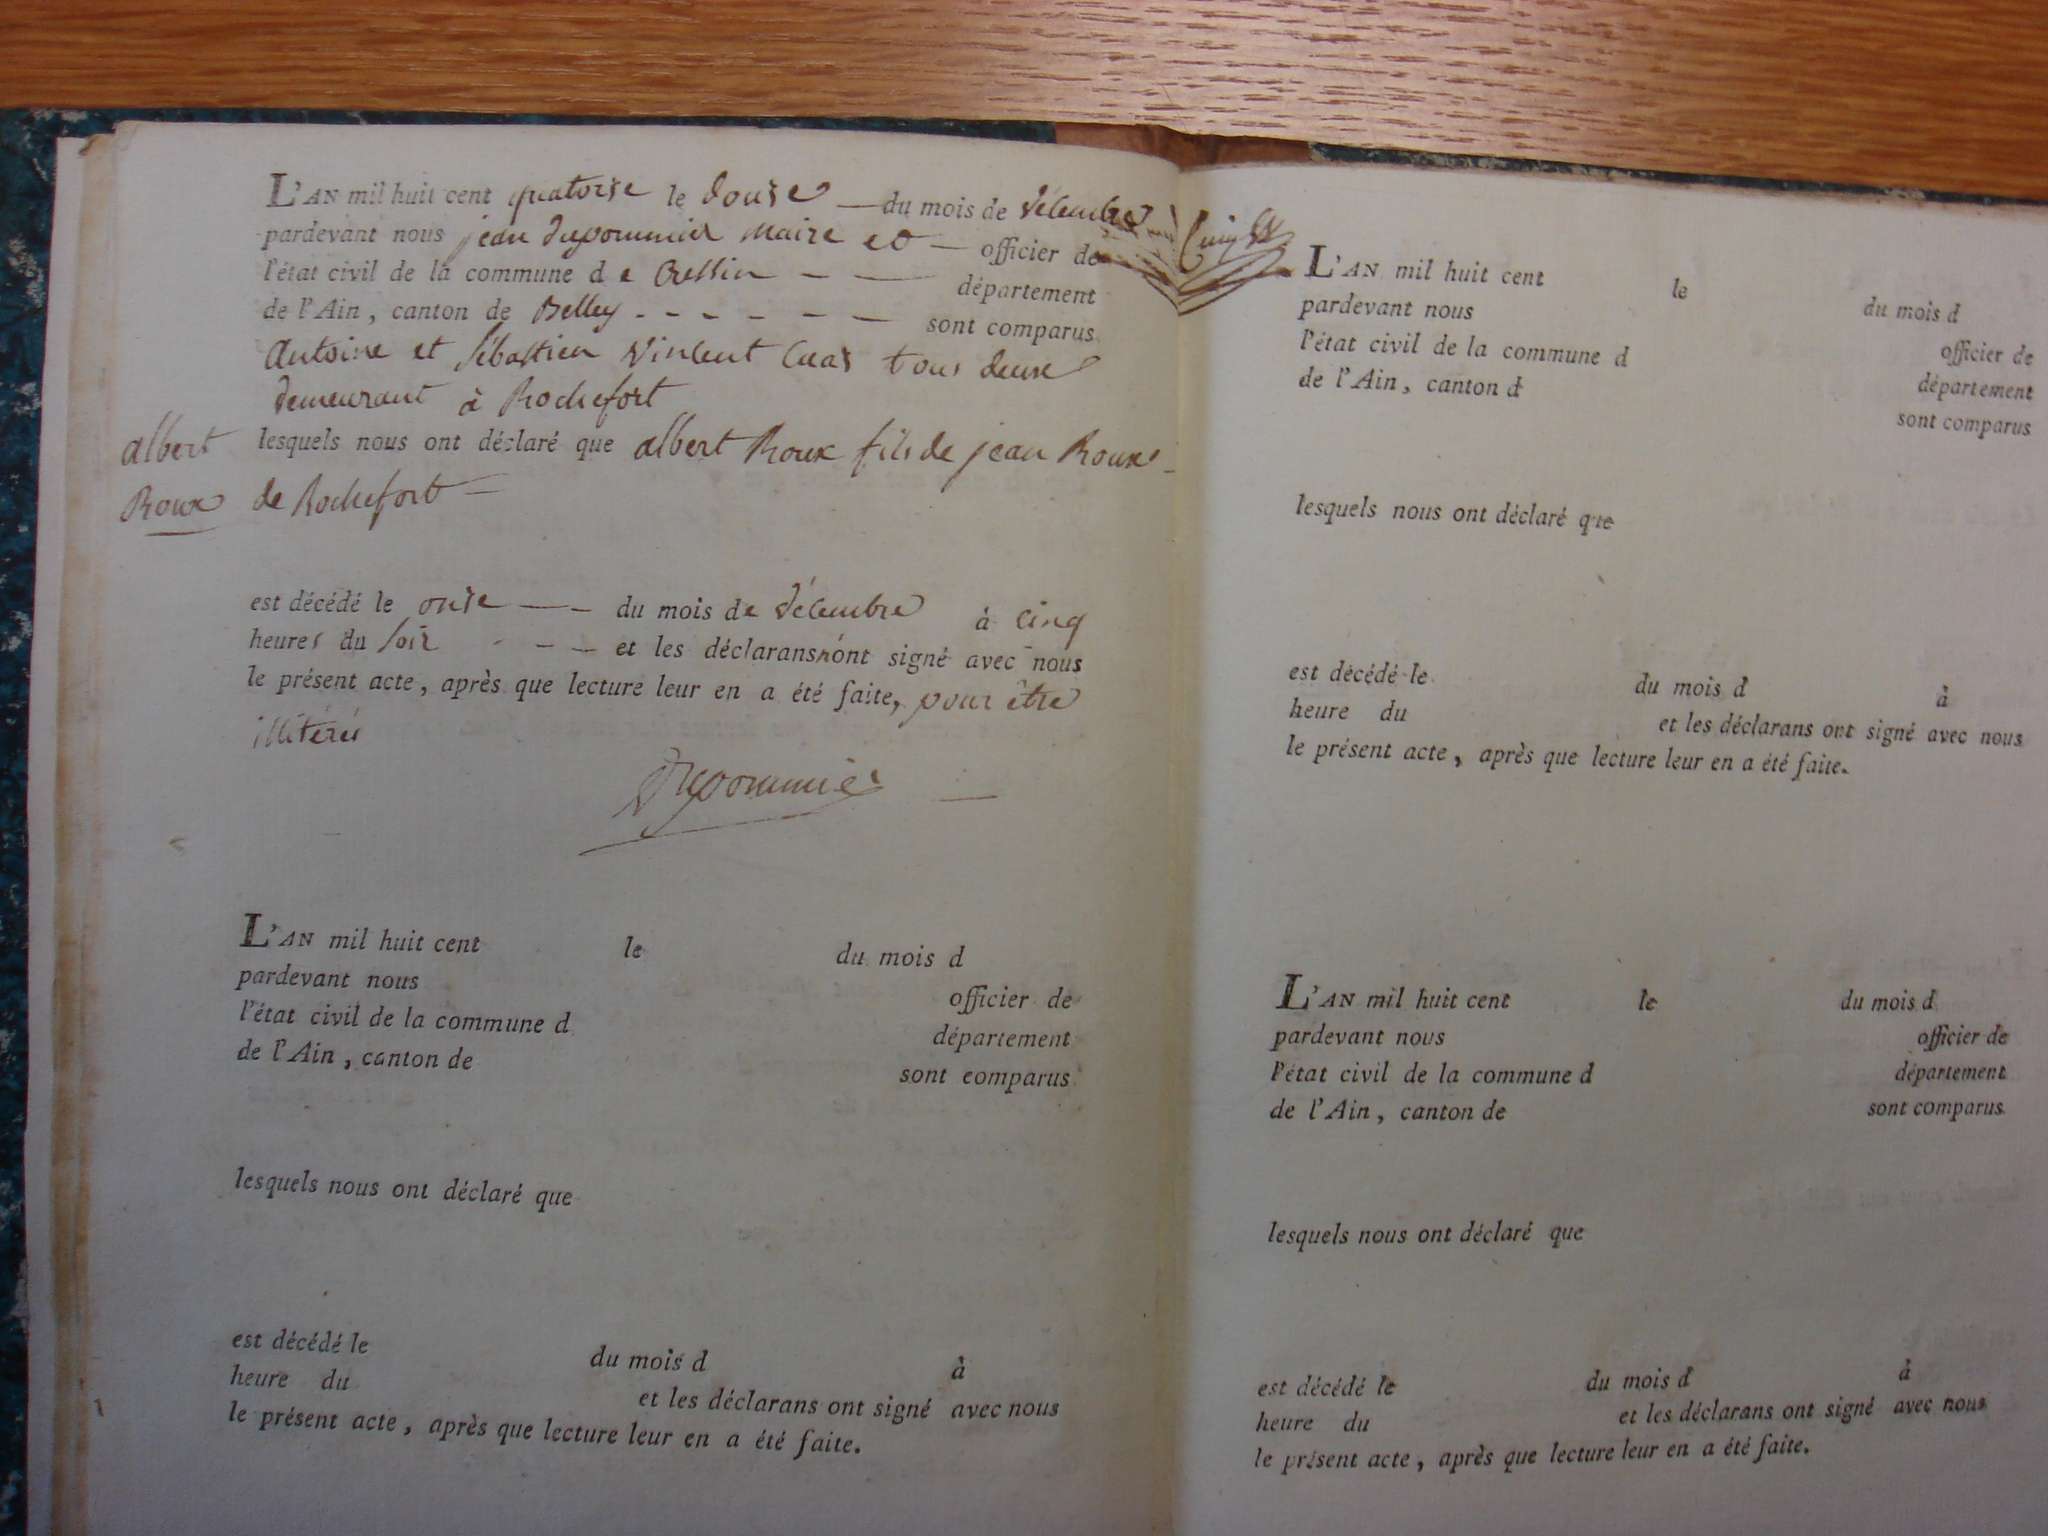 L'AN mil huit cent quatorse le douse du mois de décembre
pardevant nous jean dupommier maire et officier de
l'état civil de la commune de Cressin département
de l'Ain, canton de Belley sont comparus
Antoine et Sébastien Vincent tous deux
demeurant à Rochefort
albert
Roux
lesquels nous ont déclaré que albert Roux fils de jean Roux
de Rochefort
est décédé le onse du mois de décembre à cinq
heures du soir et les déclarans n'ont signé avec nous
le présent acte, après que lecture leur en a été faite, pour être
illitérés
Dupommier
L'AN mil huit cent le du mois d
pardevant nous officier de
l'état civil de la commune d département
de l'Ain, canton de sont comparus
lesquels nous ont déclaré que
est décédé le du mois d à
heure du et les déclarans ont signé avec nous
le présent acte, après que lecture leur en a été faite.
L'AN mil huit cent le du mois d
pardevant nous officier de
l'état civil de la commune d département
de l'Ain, canton d sont comparus
lesquels nous ont déclaré que
est décédé le du mois d à
heure du et les déclarans ont signé avec nous
le présent acte, après que lecture leur en a été faite.
L'AN mil huit cent le du mois d
pardevant nous officier de
l'état civil de la commune d département
de l'Ain, canton de sont comparus
lesquels nous ont déclaré que
est décédé le du mois d à
heure du et les déclarans ont signé avec nous
le présent acte, après que lecture leur en a été faite.